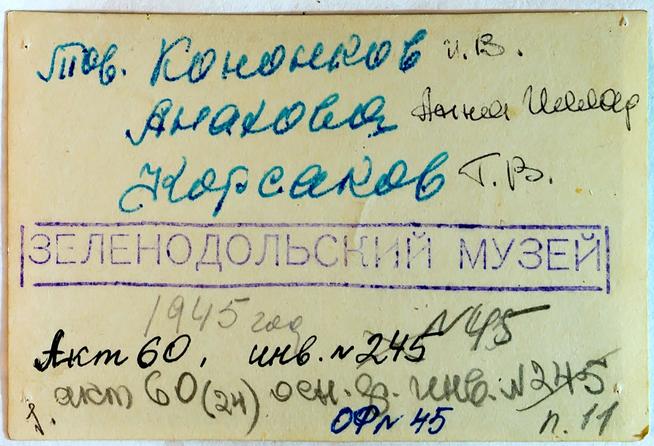 тов. Кононков И.В.
Анахова Анна
Корсаков Т.В.
ЗЕЛЕНОДОЛЬСКИЙ МУЗЕЙ
1945 год
N45
Акт 60, инв. N 245
акт 60 (24) осн. ф. инв. N 245
ОФ N 45
п. 11